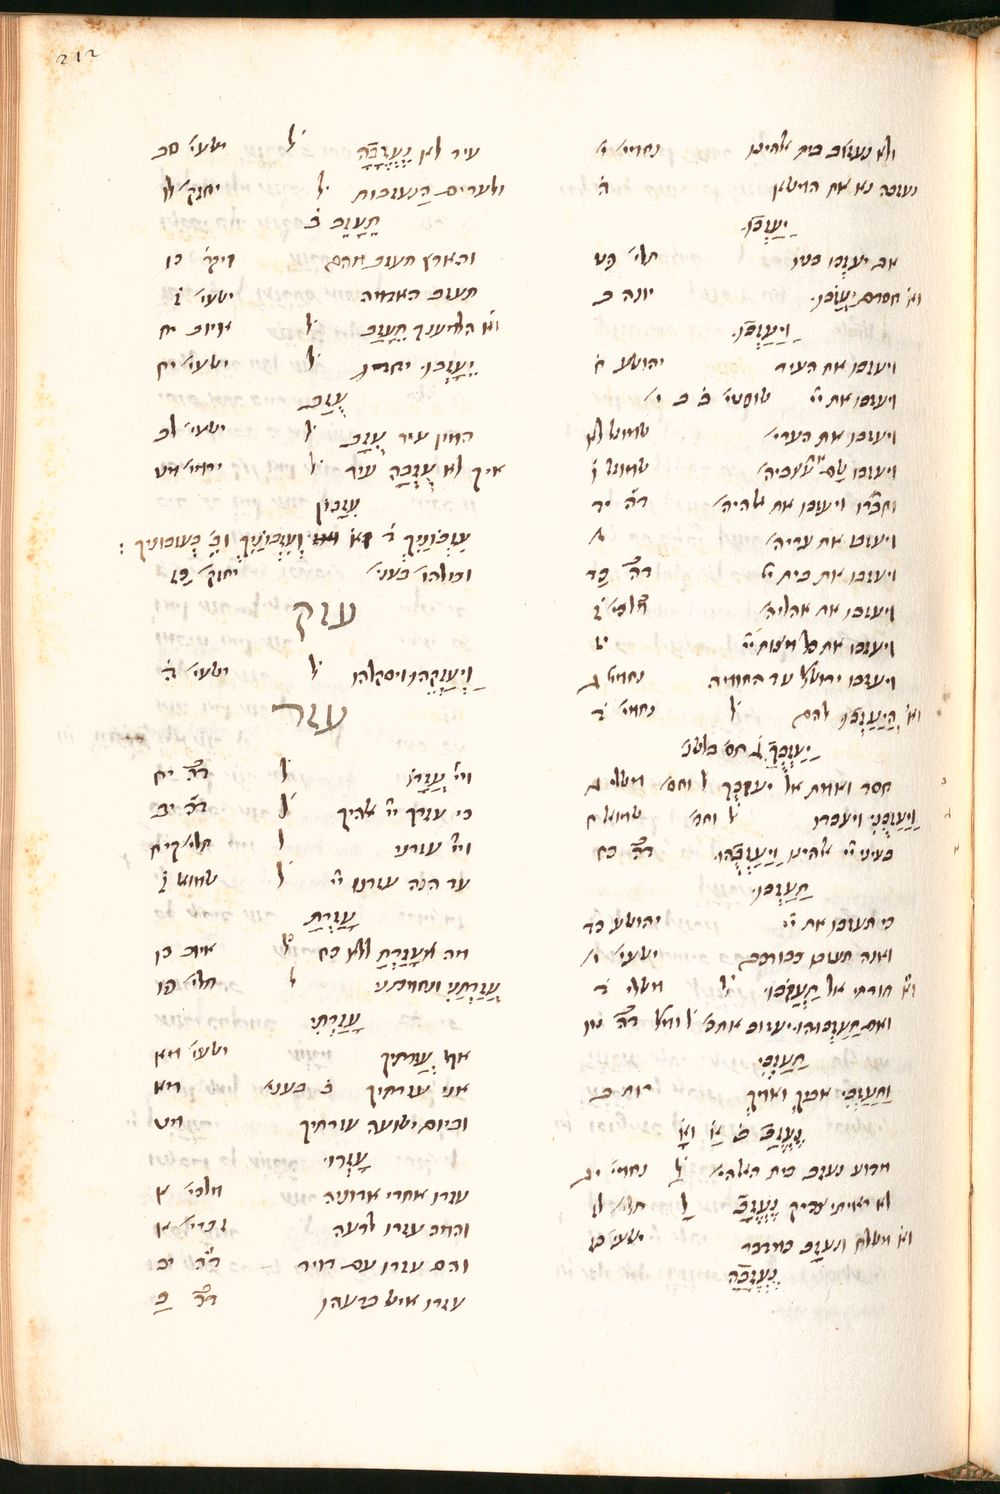 212
ולא נעזוב בית אלהינו נחמי׳ י׳
נעזבה נא את המשא ה׳
יַעַזְבוּ
אם יעזבו בניו תלי׳ פט
וא׳ חסדם יַעֲזֹבוּ יונה ב
וַיַּעַזְבוּ
ויעזבו את העיר יהושע ח
ויעזבו את יי׳ שופטי׳ ב ב י׳
ויעזבו את הערי׳ שמואל לא
ויעזבו שם עצביה׳ שמואל ו׳
וחברו ויעזבו את אלהיה׳ ד״ה יד
ויעזבו את עריה׳
ויעזבו את בית יי׳ ד״ה כד
ויעזבו את אהליה׳ מלכי׳ ז׳
ויעזבו את כל מצות יי׳ יז
ויעזבו ירושלם עד החומה נחמי׳ ג
וא׳ הֲיַעַזְבוּ להם ל׳ נחמי׳ ד׳
יַעַזְבֻךָ
חסד ואמת אל יעזבך ל׳ וחס׳ משלי ג
וַיַּעַזְבֻנִי ויעבדו ל׳ וחס׳ שמואל ח
בעיני יי׳ אלהינו וַיַּעַזְבֻהוּ ד״ה כח
תַעַזְבוּ
כי תעזבו את יי׳ יהושע כד
ואנה תעזבו כבודכם ישעי׳ י׳
וא׳ תורתי אל תַּעֲזֹבוּ ל׳ משלי ד׳
ואם תַּעַזְבוּהוּ יעזוב אתכ׳ ל׳ ומל׳ ד״ה
תַעַזְבִי
וַתַּעַזְבִי אביך ואמך רות ב
נֶעֱזַב
מדוע נעזב בית האלהי׳ נחמי׳ יג
לא ראיתי צדיק נֶעֱזָב ל׳ תלי׳ לז
וא׳ משלח ונעזב כמדבר ישעי׳ כז
נֶעֱזָבָה
עיר לא נֶעֱזָבָה ל׳ ישעי׳ סב
ולערים הנעזבות ל׳ יחזק׳ לו
תֵעָזֵב ב׳
והארץ תעזב מהם ויקר׳ כו
תעזב האדמה ישעי׳ ז׳
וא׳ הלמענך תֵּעָזַב ל׳ איוב יח
יֵעָזְבוּ יחדו ל׳ ישעי׳ יח
עֻזַּב
המון עיר עֻזָּב ל׳ ישעי׳ לב
איך לא עֻזְּבָה עיר ל׳ ירמי׳ מט
עִזָּבוֹן
עִזְבוֹנַיִךְ וְעִזְבוֹנַיִךְ בְּעִזְבוֹנַיִךְ :
וכולהו׳ בעני׳ יחזק׳ כז
עזק
וַיְעַזְּקֵהוּ ויסקלהו ל׳ ישעי׳ ה׳
עזר
ויי׳ עֲזָרוֹ ל׳ ד״ה יח
כי עזרך יי׳ אלהיך ל׳ ד״ה יב
ויי׳ עזרני ל׳ תלי׳ קיח
עד הנה עזרנו יי׳ ל׳ שמואל ז׳
עָזַרְתָּ
מה עָזַרְתָּ ללא כח ל׳ איוב כו
עֲזַרְתַּנִי ונחמתני ל׳ תלי׳ פו
עָזַרְתִּי
אף עֲזַרְתִּיךָ ישעי׳ מא
אני עזרתיך ב׳ בענ׳ מא
וביום ישועה עזרתיך מט
עָזְרוּ
עזרו אחרי אדוניה מלכי׳ א
והמה עזרו לרעה זכרי׳ א
והם עזרו עם דויד ד״ה יב
עזרו איש ברעהו ד״ה כ